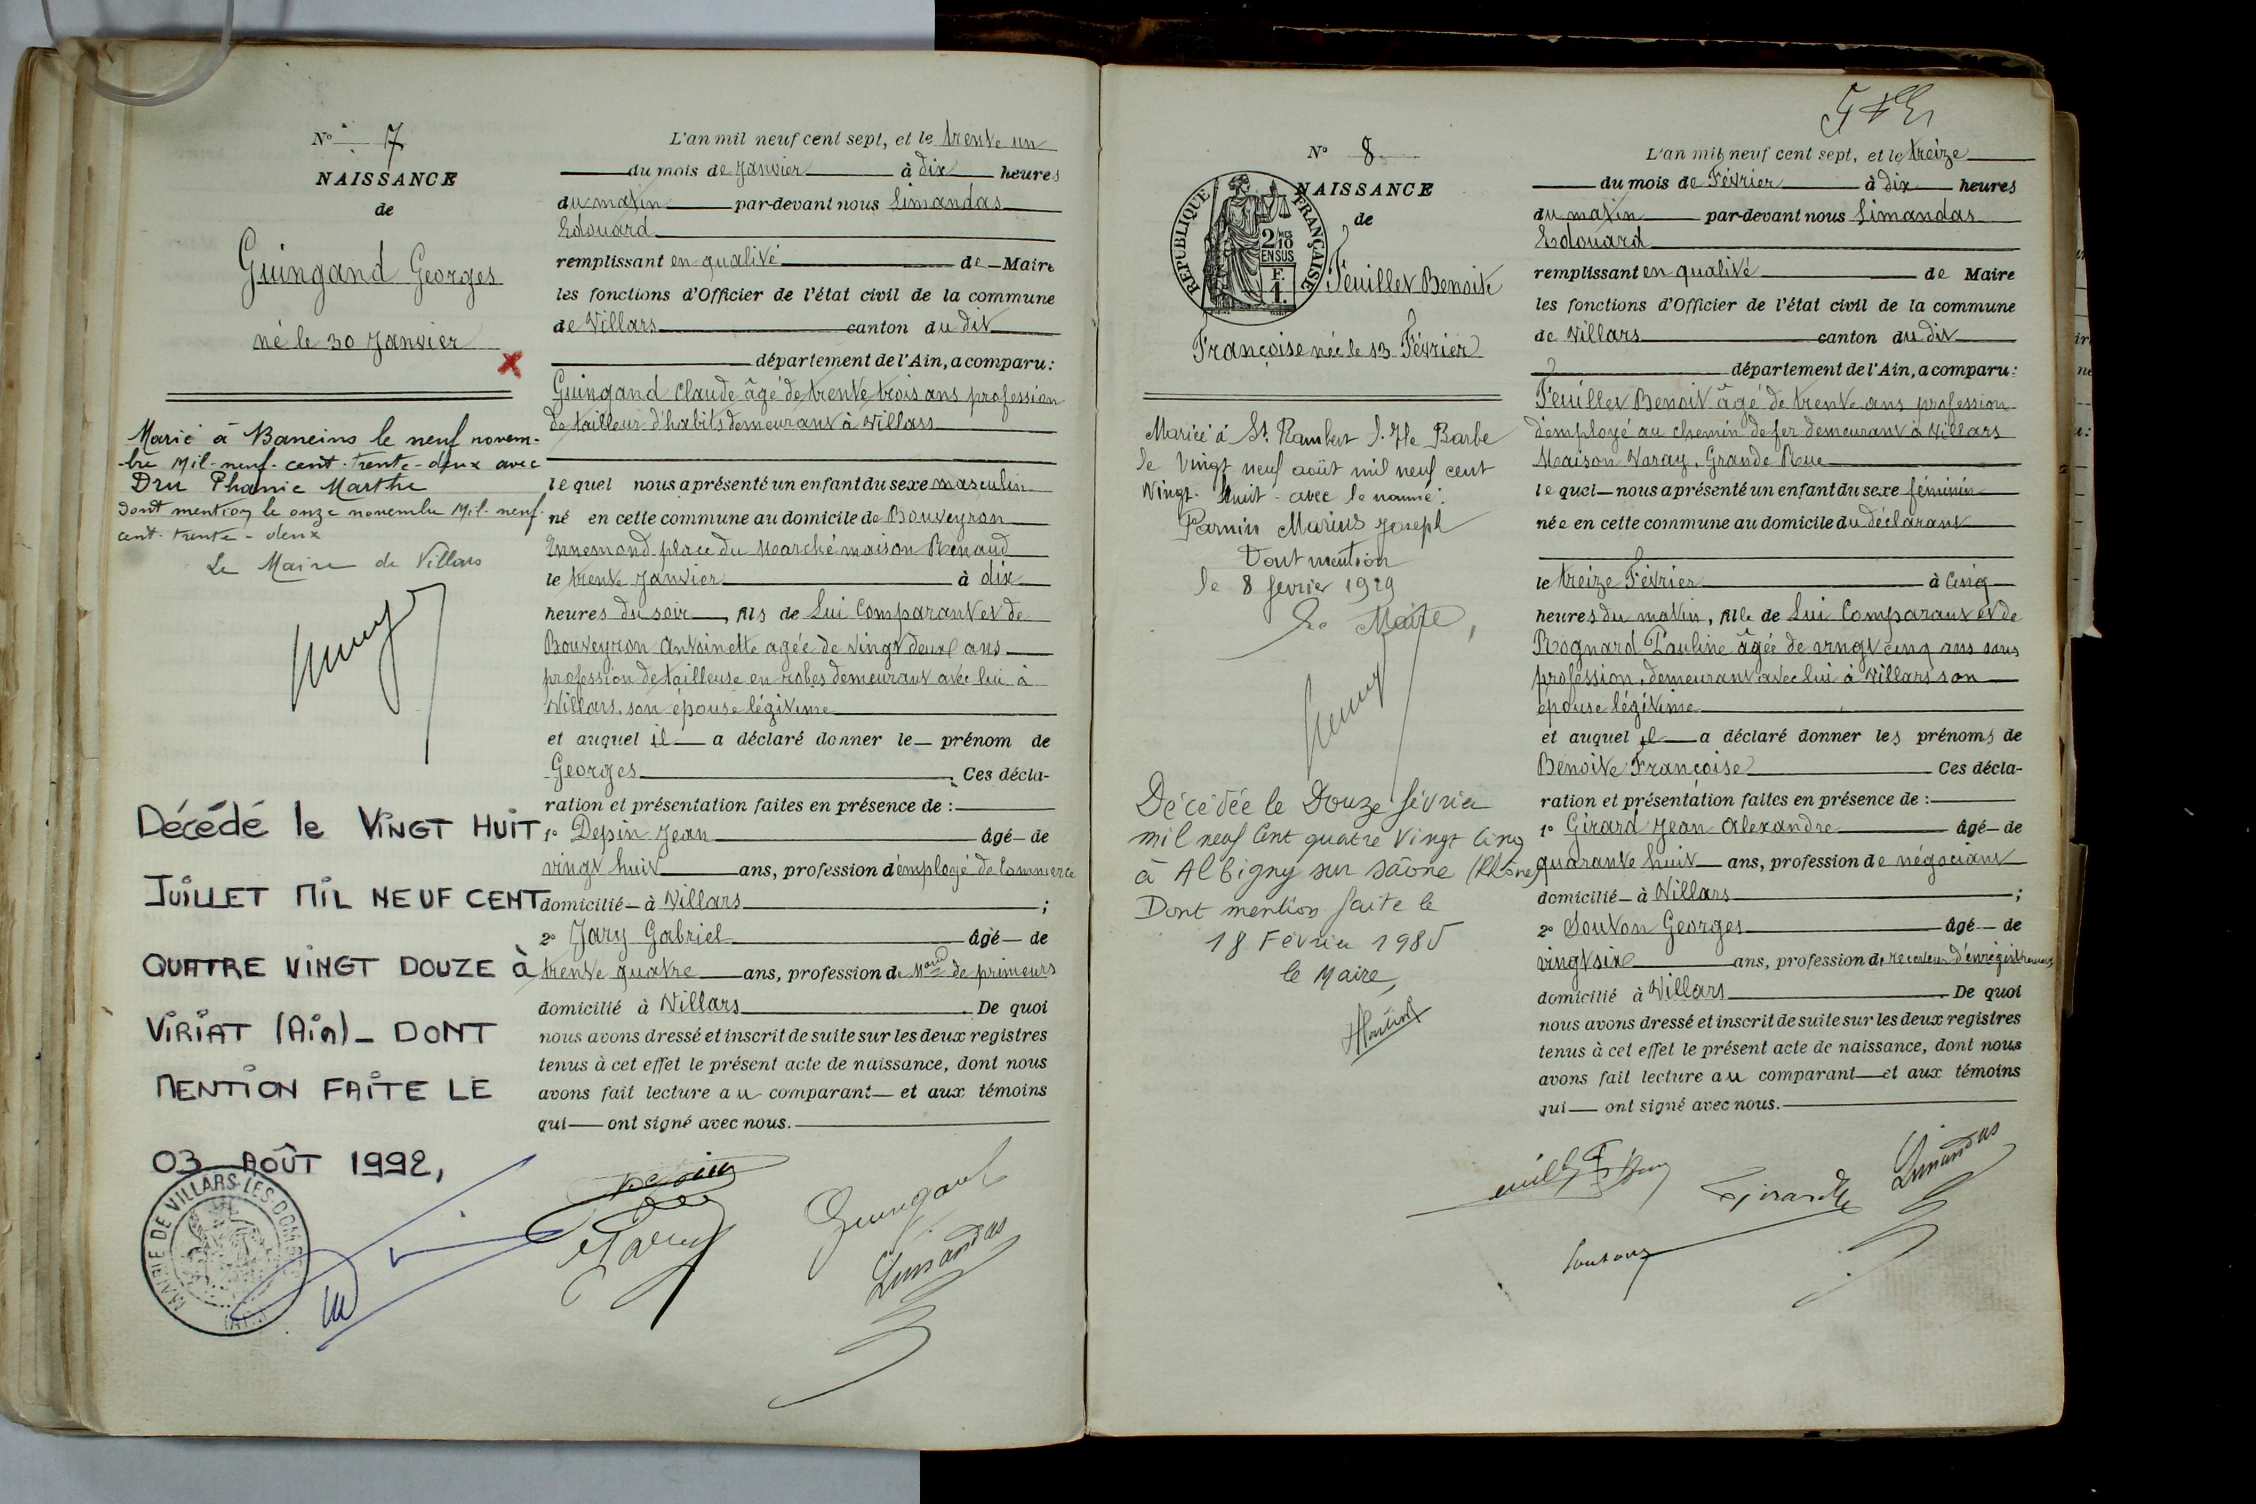 N° 7
NAISSANCE
de
Guingand Georges
né le 30 Janvier
Marié à Baneins le neuf novem-
bre Mil-neuf-cent-trente-deux avec
Dru Phanie Marthe
dont mention le onze novembre Mil-neuf-
cent-trente-deux
Le Maire de Villars
Décédé le VINGT HUIT
JUILLET MIL NEUF CENT
QUATRE VINGT DOUZE À
VIRIAT (Ain)_ DONT
MENTION FAITE LE
03 AOÛT 1992,
MAIRIE DE VILLARS-LES-DOMBES
(AIN)
L'an mil neuf cent sept, et le trente un
du mois de Janvier à dix heures
du matin par-devant nous Limandas
Edouard
remplissant en qualité de Maire
les fonctions d'Officier de l'état civil de la commune
de Villars canton du dit
département de l'Ain, a comparu:
Guingand Claude âgé de trente trois ans profession
de tailleur d'habits demeurant à Villars
lequel nous a présenté un enfant du sexe masculin
né en cette commune au domicile de Bouveyron
Ennemond place du Marché maison Renaud
le trente Janvier à dix
heures du soir, fils de Lui Comparant et de
Bouveyron Antoinette agée de vingt deux ans
profession de tailleuse en robes demeurant avec lui à
Villars, son épouse légitime
et auquel il a déclaré donner le prénom de
Georges Ces décla-
ration et présentation faites en présence de :
1° Depin Jean âgé de
vingt huit ans, profession d'employé de Commerce
domicilié à Villars ;
2° Jary Gabriel âgé de
trente quatre ans, profession de Md de primeurs
domicilié à Villars De quoi
nous avons dressé et inscrit de suite sur les deux registres
tenus à cet effet le présent acte de naissance, dont nous
avons fait lecture au comparant et aux témoins
qui ont signé avec nous.
Guingand
Limandas
N° 8
NAISSANCE
de
RÉPUBLIQUE FRANÇAISE
2/10 MES
EN SUS
F.
1.
Feuillet Benoite
Françoise née le 13 Février
Mariée à St Rambert l. Ile Barbe
le vingt neuf août mil neuf cent
vingt-huit avec le nommé :
Parnin Marius Joseph
Dont mention
le 8 février 1929
Le Maire,
Décédée le Douze février
mil neuf Cent quatre Vingt Cinq
à Albigny sur Saône (Rhône)
Dont mention faite le
18 Février 1985
le Maire,
L'an mil neuf cent sept, et le treize
du mois de Février à dix heures
du matin par-devant nous Limandas
Edouard
remplissant en qualité de Maire
les fonctions d'Officier de l'état civil de la commune
de Villars canton du dit
département de l'Ain, a comparu:
Feuillet Benoit âgé de trente ans profession
d'employé au chemin de fer demeurant à Villars
Maison Varay, Grande Rue
lequel nous a présenté un enfant du sexe féminin
née en cette commune au domicile du déclarant
le treize Février à Cinq
heures du matin, fille de Lui Comparant et de
Rognard Pauline âgée de vingt cinq ans sans
profession, demeurant avec lui à Villars son
épouse légitime
et auquel il a déclaré donner les prénoms de
Benoite Françoise Ces décla-
ration et présentation faites en présence de :
1° Girard Jean Alexandre âgé de
quarante huit ans, profession de négociant
domicilié à Villars ;
2° Souton Georges âgé de
vingt six ans, profession de receveur d'enregistrement
domicilié à Villars De quoi
nous avons dressé et inscrit de suite sur les deux registres
tenus à cet effet le présent acte de naissance, dont nous
avons fait lecture au comparant et aux témoins
qui ont signé avec nous.
Limandas